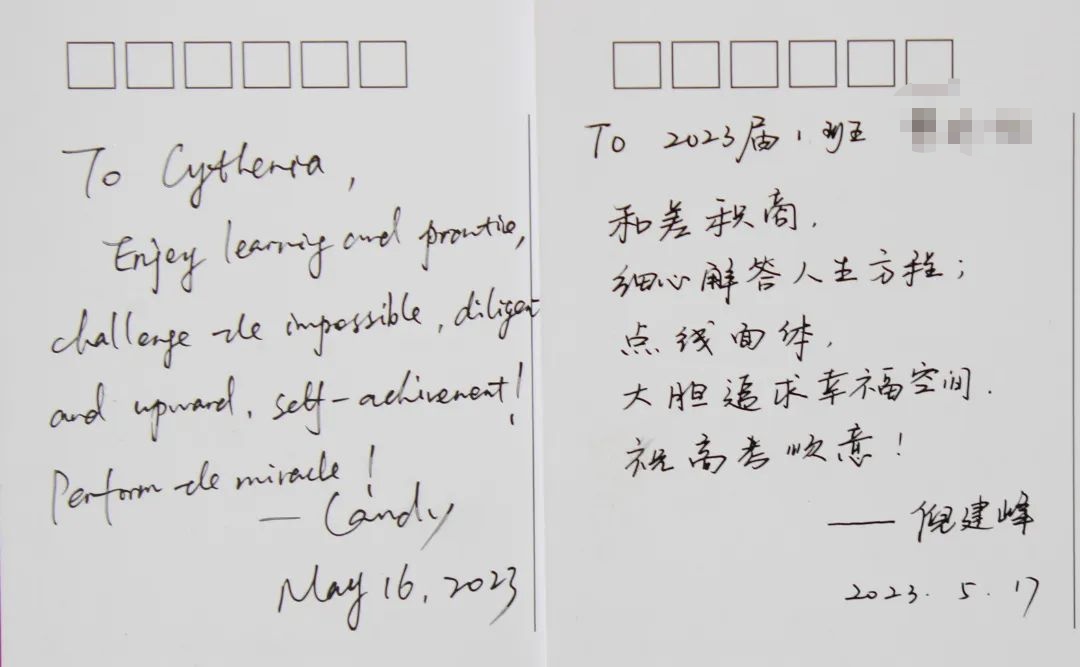 To Cythenia,
Enjoy learning and practice,
challenge the impossible, diligent
and upward, self-achivement!
Perform the miracle!
— Candy
May 16, 2023
To 2023届1班
和差积商,
细心解答人生方程;
点线面体,
大胆追求幸福空间.
祝高考顺意!
—— 倪建峰
2023.5.17